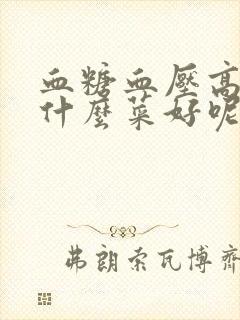 血糖血壓高
什麼菜好呢
弗朗索瓦博齊